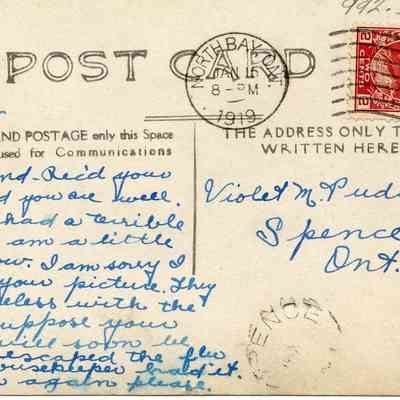 992.
POST CARD
NORTH BAY, ONT.
JAN 15
8 - PM
1919
2 CENTS 2
ND POSTAGE only this Space
used for Communications
THE ADDRESS ONLY T
WRITTEN HERE
nd - Rec'd your
d you are well.
had a terrible
am a little
ow. I am sorry I
your picture. They
eless with the
uppose your
will soon be
escaped the flu
ousekeeper had it.
again please.
Violet M. Pud
Spence
Ont.
ENCE